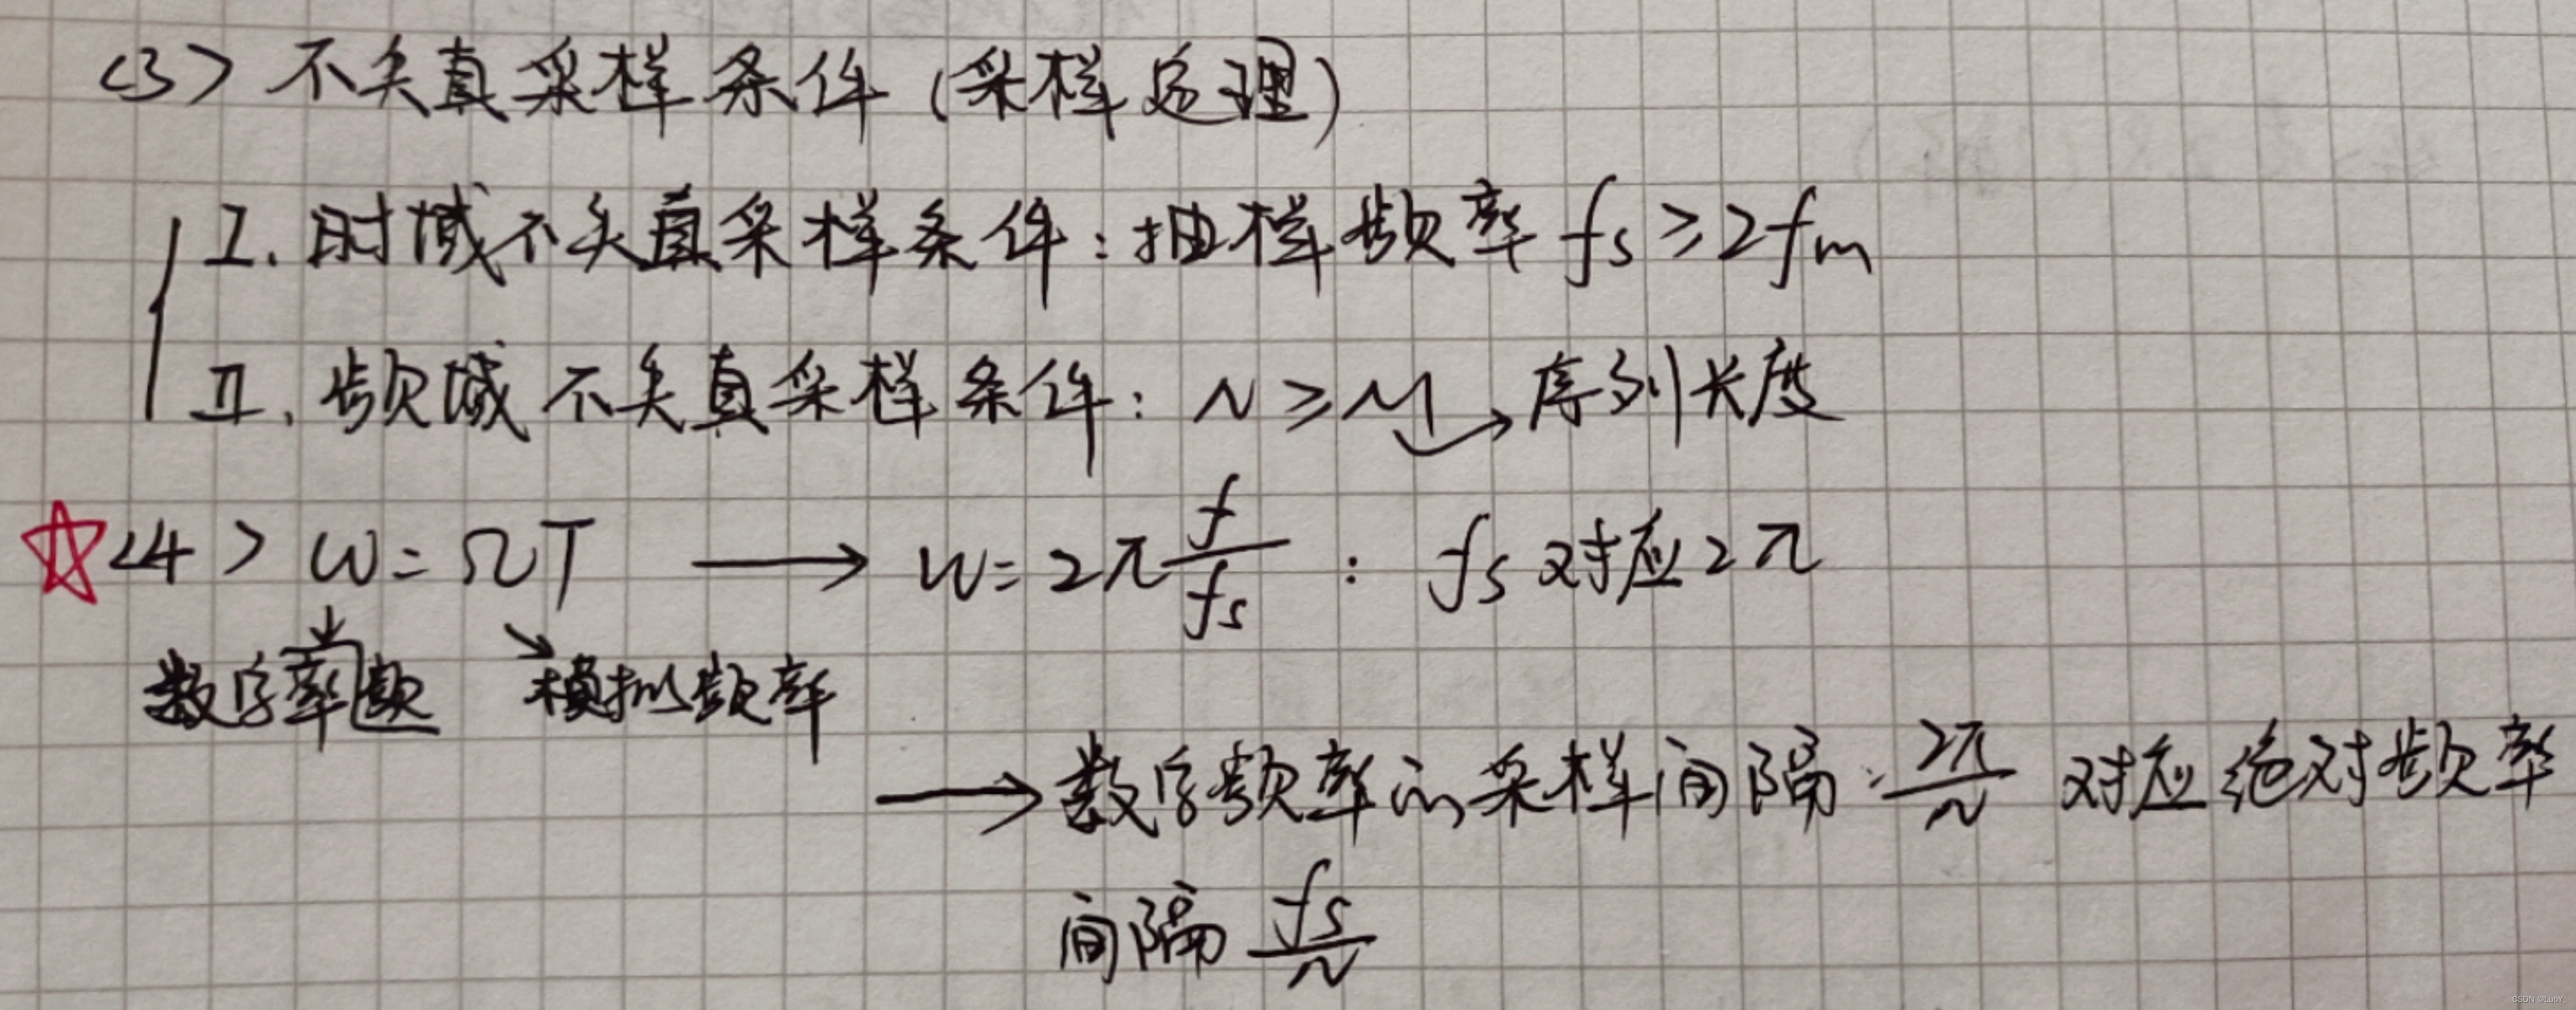 <3> 不失真采样条件 (采样定理)
I. 时域不失真采样条件: 抽样频率 fs ≥ 2fm
II. 频域不失真采样条件: N ≥ M → 序列长度
☆ <4> ω = ΩT → ω = 2π f/fs : fs 对应 2π
数字率频 模拟频率
→ 数字频率的采样间隔: 2π/N 对应绝对频率
间隔 fs/N
CSDN @LuoY